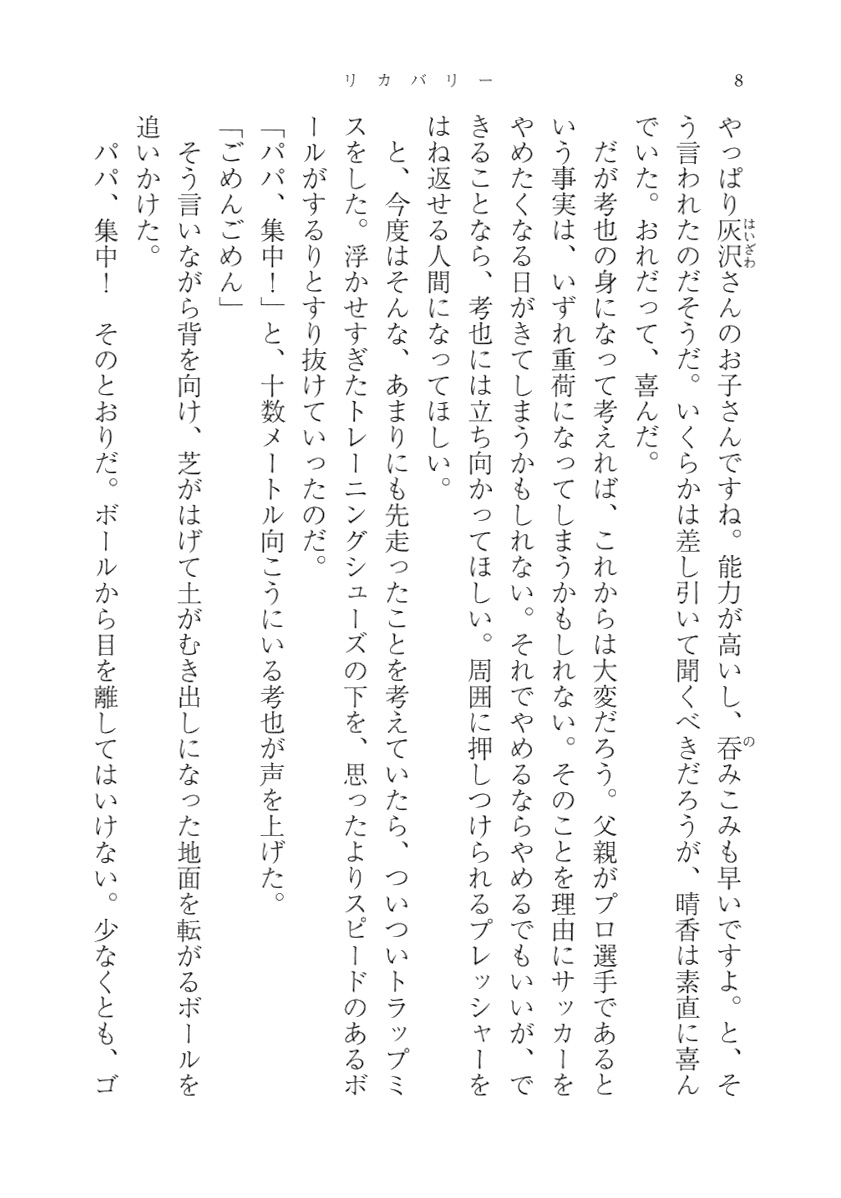 リカバリー
8
やっぱり灰沢さんのお子さんですね。能力が高いし、呑みこみも早いですよ。と、そ
はいざわ
の
う言われたのだそうだ。いくらかは差し引いて聞くべきだろうが、晴香は素直に喜ん
でいた。おれだって、喜んだ。
だが考也の身になって考えれば、これからは大変だろう。父親がプロ選手であると
いう事実は、いずれ重荷になってしまうかもしれない。そのことを理由にサッカーを
やめたくなる日がきてしまうかもしれない。それでやめるならやめるでもいいが、で
きることなら、考也には立ち向かってほしい。周囲に押しつけられるプレッシャーを
はね返せる人間になってほしい。
と、今度はそんな、あまりにも先走ったことを考えていたら、ついついトラップミ
スをした。浮かせすぎたトレーニングシューズの下を、思ったよりスピードのあるボ
ールがするりとすり抜けていったのだ。
「パパ、集中！」と、十数メートル向こうにいる考也が声を上げた。
「ごめんごめん」
そう言いながら背を向け、芝がはげて土がむき出しになった地面を転がるボールを
追いかけた。
パパ、集中！　そのとおりだ。ボールから目を離してはいけない。少なくとも、ゴ